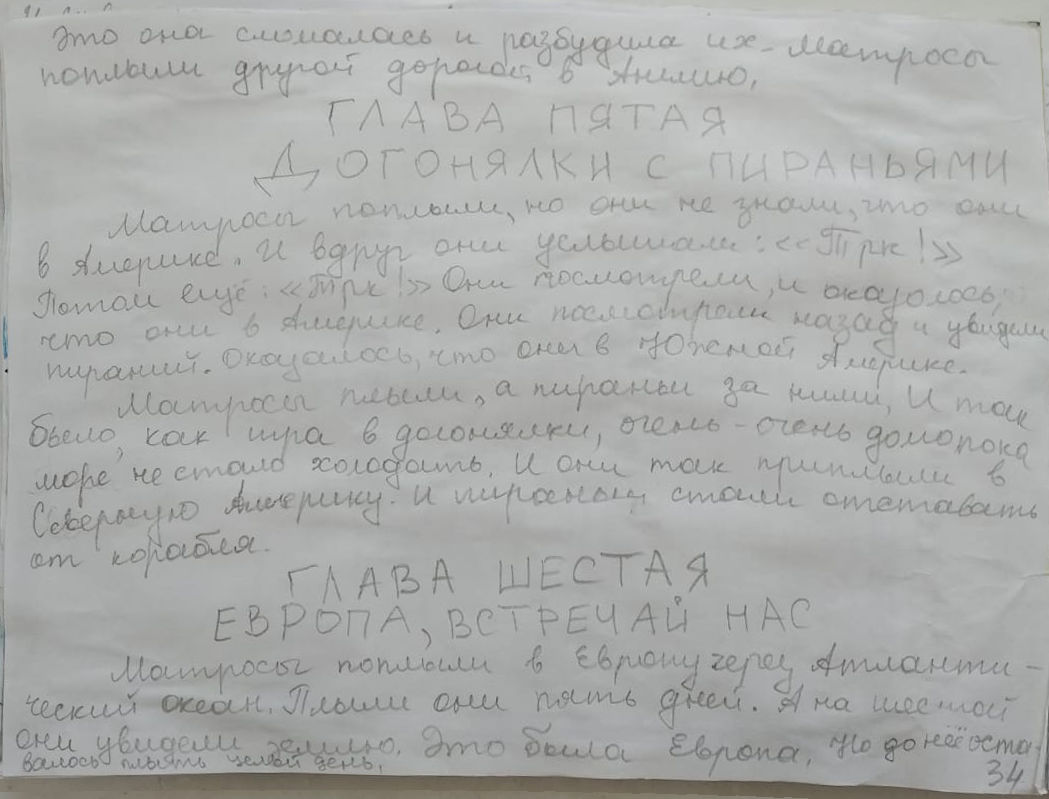 Это она сломалась и разбудила их. Матросы
поплыли другой дорогой в Англию.
ГЛАВА ПЯТАЯ
ДОГОНЯЛКИ С ПИРАНЬЯМИ
Матросы поплыли, но они не знали, что они
в Америке. И вдруг они услышали: «Трк!»
Потом ещё: «Трк!» Они посмотрели, и оказолось,
что они в Америке. Они посмотрели назад и увидели
пираний. Оказалось, что они в Южной Америке.
Матросы плыли, а пираньи за ними. И так
было, как игра в догонялки, очень-очень долго пока
море не стало холодать. И они так приплыли в
Северную Америку. И пираньи стали отставать
от корабля.
ГЛАВА ШЕСТАЯ
ЕВРОПА, ВСТРЕЧАЙ НАС
Матросы поплыли в Европу через Атланти-
ческий океан. Плыли они пять дней. А на шестой
они увидели землю. Это была Европа. Но до неё оста-
валось плыть целый день.
34